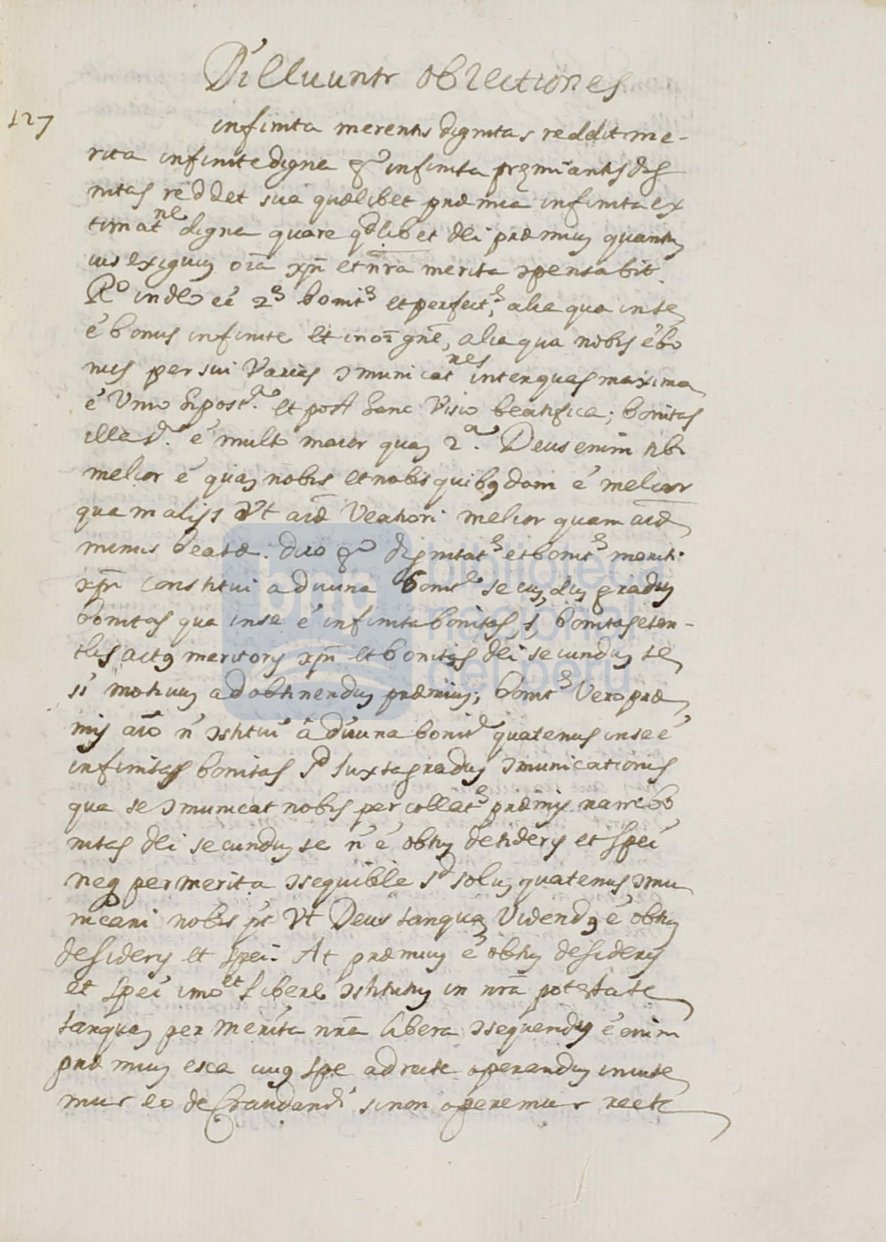 Diluuntr obiectiones
127
infinita merentis dignitas reddit me-
rita infinite digna infinita præmiantis dig
nitas reddet sua quælibet præmia infinita ex
timatne digna quare qdlibet dei præmiũ quantũ
uis exiguũ oĩa xpĩ et nr̃a merita
Ro in deo eẽ bonitẽ et perfectẽ, alia qua in se
ẽ bonus infinite et in oĩ gñe, alia qua nobis ẽ bo
nus per sui varias ɔmunicatnes inter quas maxima
ẽ Unio hiposta. et post hanc Visio beatifica; bonitas
illa ẽ multo maior quaȝ 2a. Deus enim sibi
melior ẽ quaȝ nobis et nobis quibꝰdam ẽ melior
qua malijs Vt aĩæ beatiori melior quam aĩæ
minus beatæ. dico dignitatẽ et bonitẽ meriti
xpĩ constitui a diuina bonite secundũ gradũ
bonitas qua in se ẽ infinita bonitas bonitas
actꝰ meritorij xpĩ et bonitas dei secundũ se
motiuũ ad obtinendũ præmiũ; bonitẽ Vero præ
mij ñ ɔstitui a diuina bonite quatenus in se ẽ
infinitas bonitas sd Iuxta gradũ ɔmunicationis
qua se ɔmunicat nobis per collatẽ præmij nam bo
nitas dei secundũ se ñ ẽ obtũ desiderij et spei
neq per merita ɔsequibile sd solũ quatenus ɔmu
nicari nobis pt Vt Deus tanquã Videndꝰ ẽ obtũ
desiderij et spei. At præmiũ ẽ obtũ desiderij
et spei imo et libere ɔstitutũ in nr̃a potestate
tanquã per merita nr̃a libera ɔsequendũ ẽ enim
præmiũ esca cuiꝰ spe ad recte operandũ inuite
mur eo defraudandi si non operemur recte